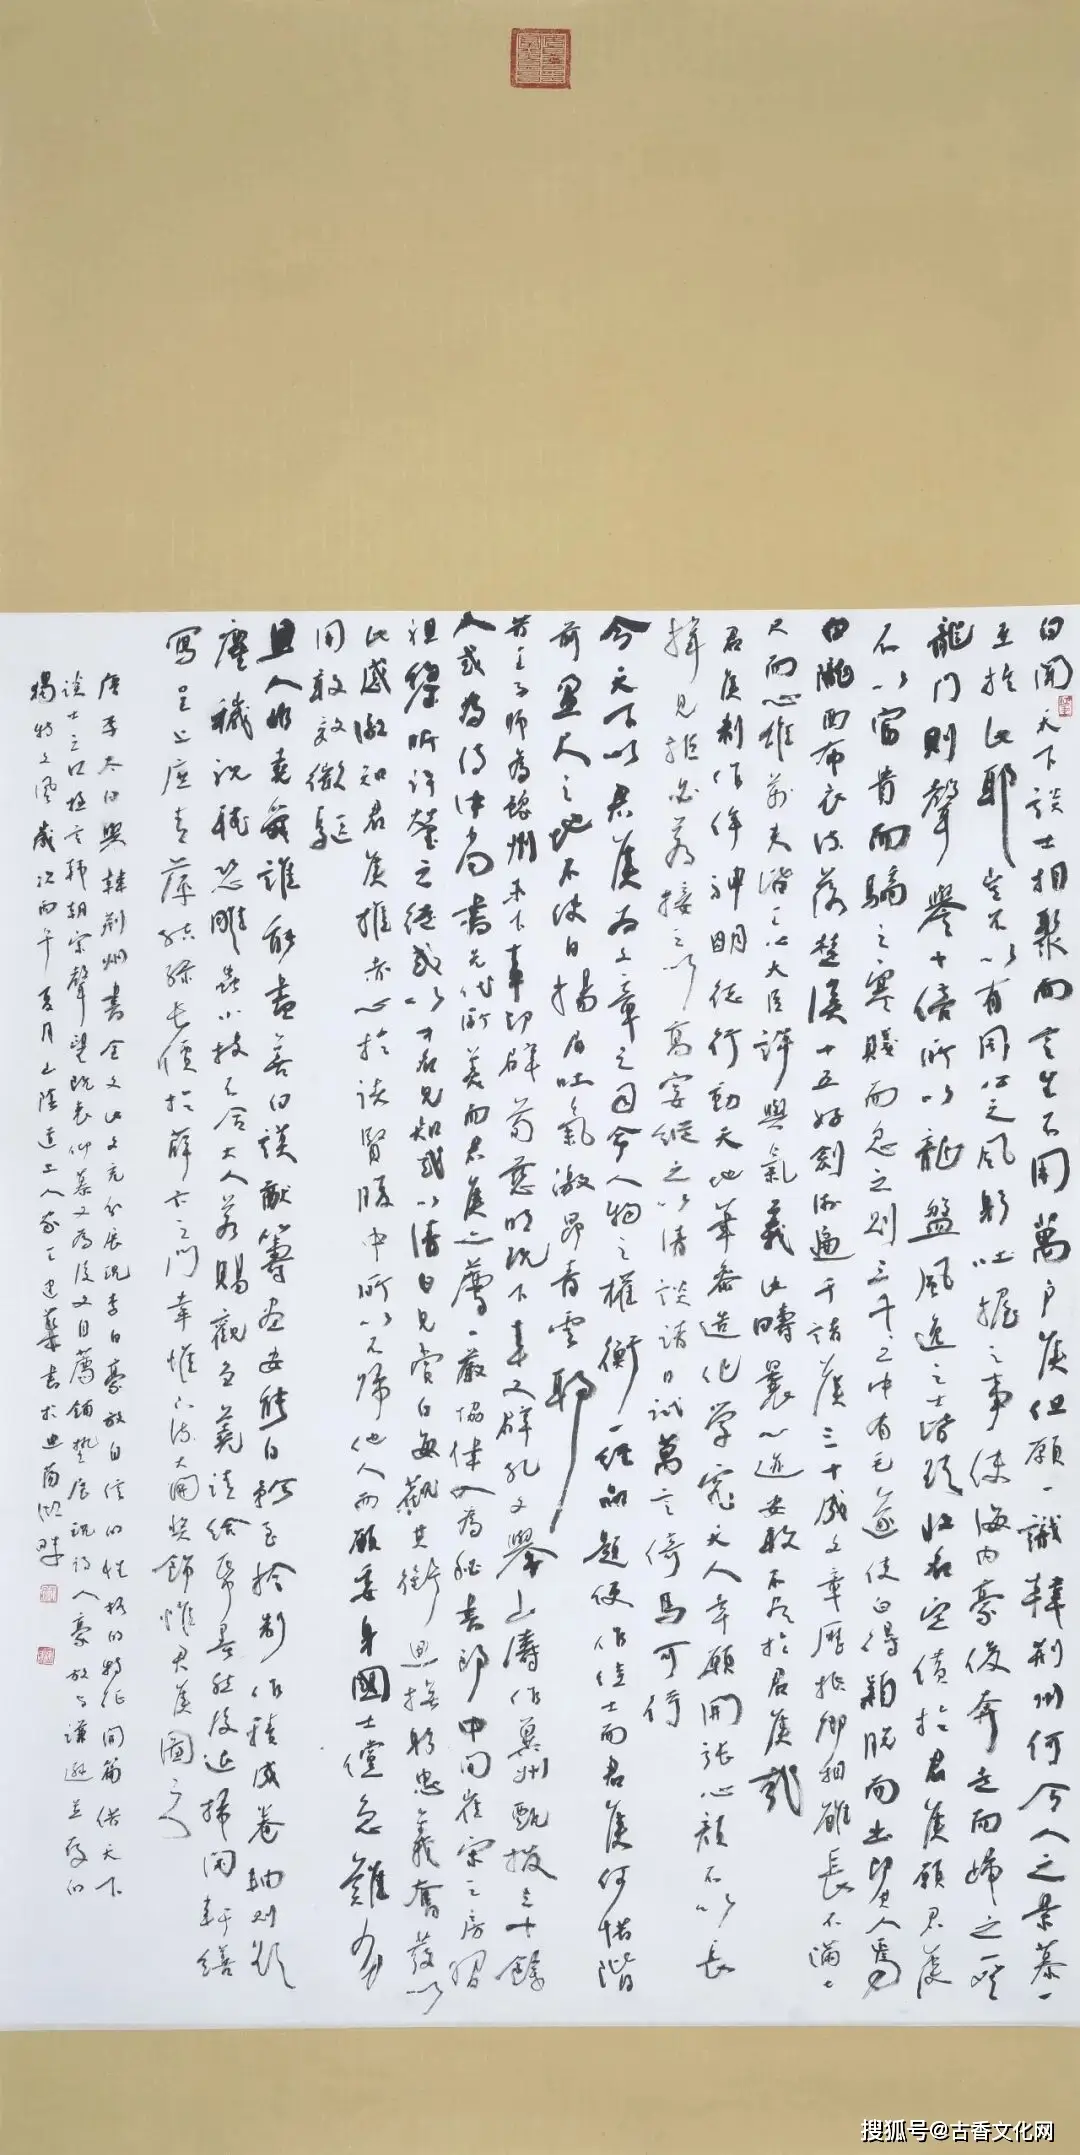 白聞天下談士相聚而言生不用萬戶侯但願一識韓荊州何令人之景慕一
至於此耶豈不以有周公之風躬吐握之事使海內豪俊奔走而歸之一登
龍門則聲譽十倍所以龍盤鳳逸之士皆欲收名定價於君侯願君侯
不以富貴而驕之寒賤而忽之則三千之中有毛遂使白得穎脫而出即其人焉
白隴西布衣流落楚漢十五好劍術遍干諸侯三十成文章歷抵卿相雖長不滿七
尺而心雄萬夫皆王公大臣許與氣義此疇曩心跡安敢不盡於君侯哉
君侯制作侔神明德行動天地筆參造化學究天人幸願開張心顏不以長
揖見拒必若接之以高宴縱之以清談請日試萬言倚馬可待
今天下以君侯為文章之司命人物之權衡一經品題便作佳士而君侯何惜階
前盈尺之地不使白揚眉吐氣激昂青雲耶
昔王子師為豫州未下車即辟荀慈明既下車又辟孔文舉山濤作冀州甄拔三十餘
人或為侍中尚書先代所美而君侯亦薦一嚴協律入為秘書郎中間崔宗之房習
祖黎昕許瑩之徒或以才名見知或以清白見賞白每觀其銜恩撫躬忠義奮發以
此感激知君侯推赤心於諸賢腹中所以不歸他人而願委身國士儻急難有
用敢效微軀
且人非堯舜誰能盡善白謨猷籌畫安能自矜至於制作積成卷軸則欲
塵穢視聽恐雕蟲小技不合大人若賜觀芻蕘請給紙墨然後退掃閑軒繕
寫呈上庶青萍結綠長價於薛卞之門幸惟下流大開獎飾惟君侯圖之
唐李太白與韓荊州書全文此文充分展現李白豪放自信的性格的特征開篇借天下
談士之口極言韓朝宗聲望既表仰慕又為後文自薦鋪墊展現詩人豪放與謙遜並存的
獨特文風歲次丙午夏月山陰道上人
搜狐号@古香文化网